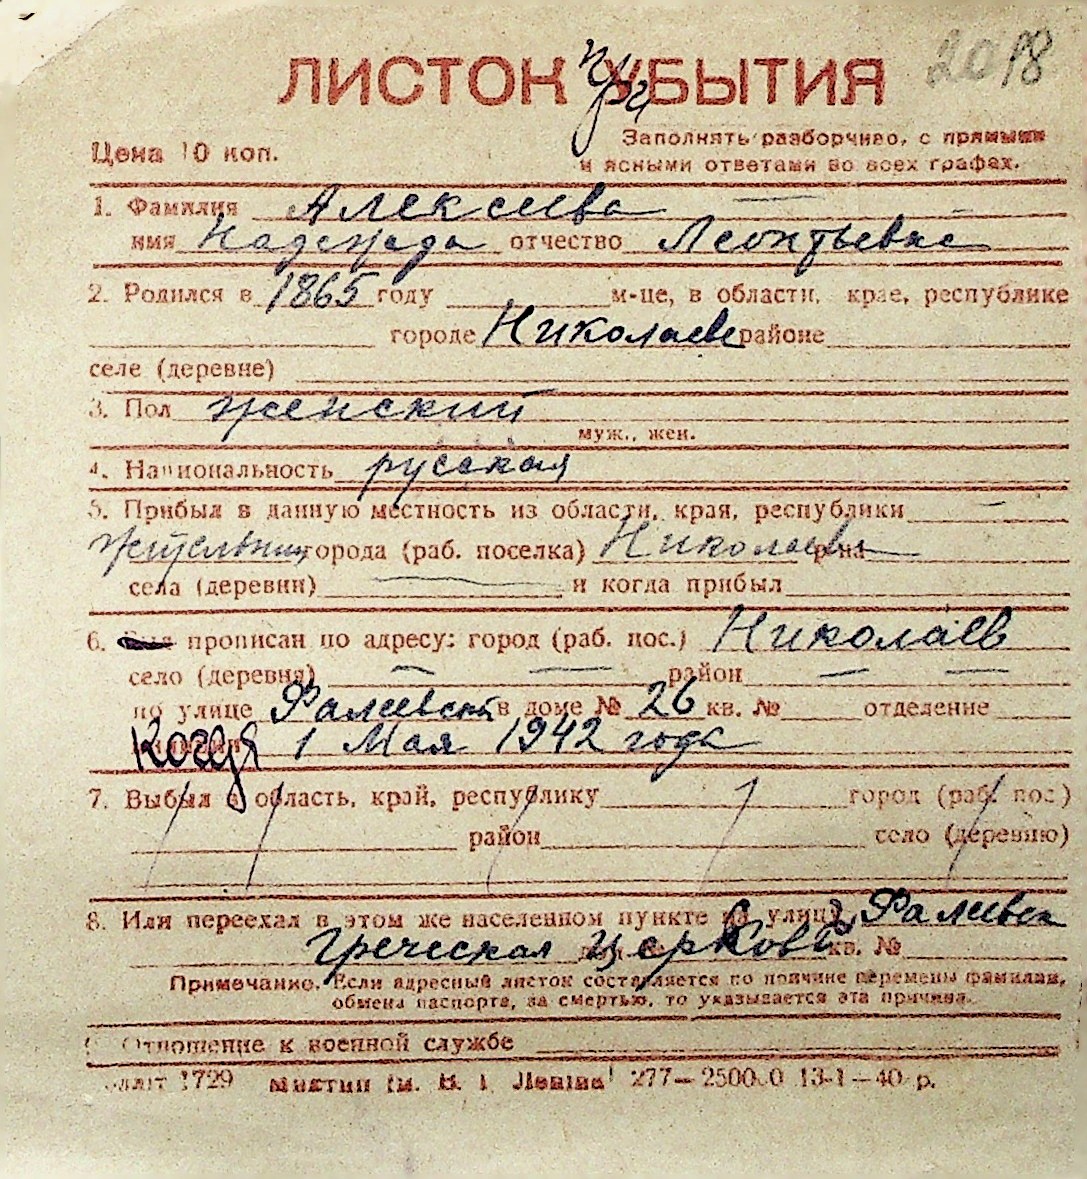 2018
ЛИСТОК при УБЫТИЯ
Цена 10 коп.
Заполнять разборчиво, с прямыми
и ясными ответами во всех графах.
1. Фамилия Алексеева
имя Надежда отчество Леонтьевна
2. Родился в 1865 году м-це, в области, крае, республике
городе Николаеве районе
селе (деревне)
3. Пол женский
муж., жен.
4. Национальность русская
5. Прибыл в данную местность из области, края, республики
города (раб. поселка) Николаева р-на
села (деревни) и когда прибыл
6. Был прописан по адресу: город (раб. пос.) Николаев
село (деревня) район
по улице Фалеевск в доме № 26 кв. № отделение
Когда 1 Мая 1942 года
7. Выбыл в область, край, республику город (раб. пос.)
район село (деревню)
8. Или переехал в этом же населенном пункте на улицу Фалеевск
греческая церковь кв. №
Примечание. Если адресный листок составляется по причине перемены фамилии,
обмена паспорта, за смертью, то указывается эта причина.
9. Отношение к военной службе
1729 277—250000 13-1—40 р.